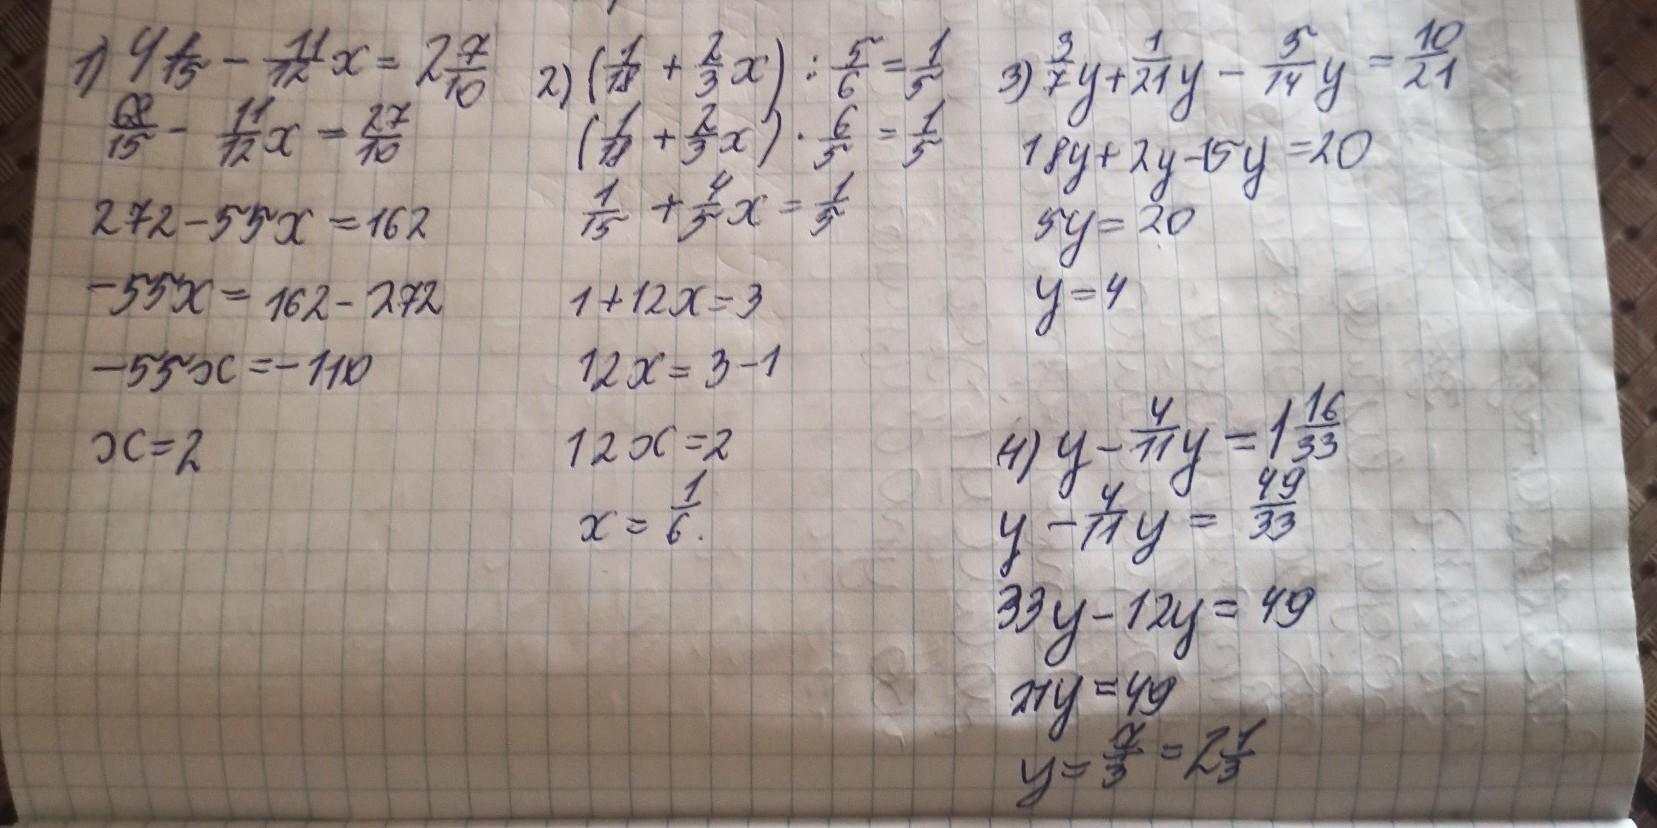 1) 4 8/15 - 11/12 x = 2 7/10
68/15 - 11/12 x = 27/10
272 - 55x = 162
-55x = 162 - 272
-55x = -110
x = 2
2) (1/18 + 2/3 x) : 5/6 = 1/5
(1/18 + 2/3 x) · 6/5 = 1/5
1/15 + 4/5 x = 1/5
1 + 12x = 3
12x = 3 - 1
12x = 2
x = 1/6.
3) 3/7 y + 1/21 y - 5/14 y = 10/21
18y + 2y - 15y = 20
5y = 20
y = 4
4) y - 4/11 y = 1 16/33
y - 4/11 y = 49/33
33y - 12y = 49
21y = 49
y = 7/3 = 2 1/3